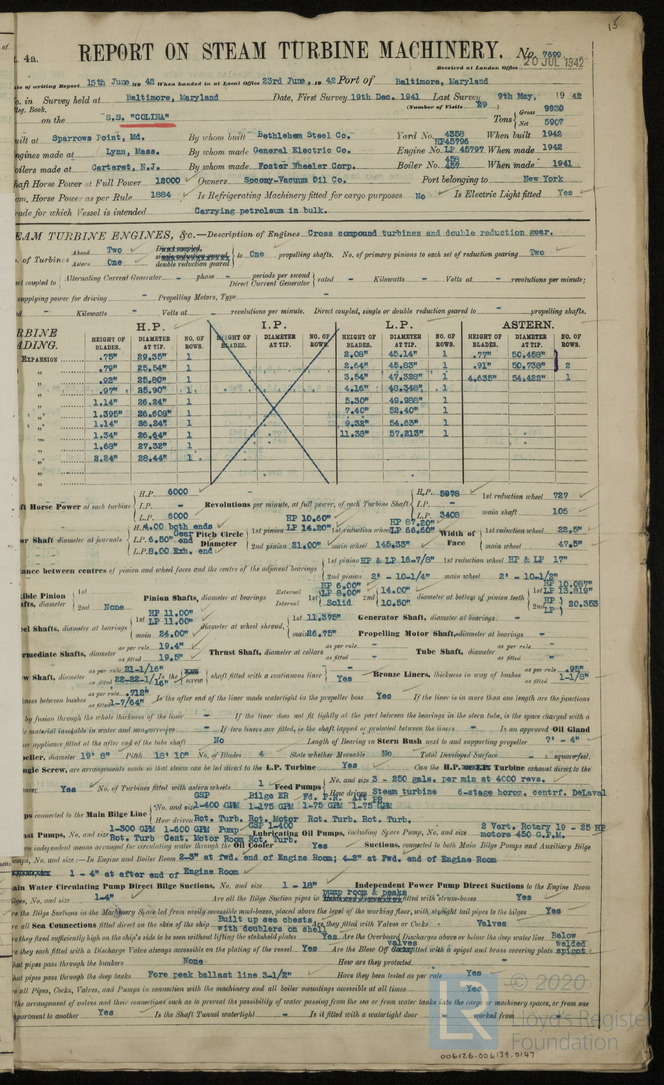 15
t. 4a.
REPORT ON STEAM TURBINE MACHINERY. No. 7699
Received at London Office 20 JUL 1942
of writing Report 15th June, 19 42 When handed in at Local Office 23rd June, 19 42 Port of Baltimore, Maryland
in Survey held at Baltimore, Maryland Date, First Survey 19th Dec. 1941 Last Survey 9th May, 19 42
Reg. Book. (Number of Visits 29 )
on the S.S. "COLINA" Tons Gross 9930 Net 5907
uilt at Sparrows Point, Md. By whom built Bethlehem Steel Co. Yard No. 4358 When built 1942
ngines made at Lynn, Mass. By whom made General Electric Co. Engine No. HP45796 LP 45797 When made 1942
oilers made at Carteret, N.J. By whom made Foster Wheeler Corp. Boiler No. 456 457 When made 1941
haft Horse Power at Full Power 12000 Owners Socony-Vacuum Oil Co. Port belonging to New York
om. Horse Power as per Rule 1884 Is Refrigerating Machinery fitted for cargo purposes No Is Electric Light fitted Yes
rade for which Vessel is intended Carrying petroleum in bulk.
EAM TURBINE ENGINES, &c.—Description of Engines Cross compound turbines and double reduction gear.
of Turbines Ahead Two Astern One double reduction geared to One propelling shafts. No. of primary pinions to each set of reduction gearing Two
coupled to Alternating Current Generator - phase - periods per second Direct Current Generator rated - Kilowatts - Volts at - revolutions per minute;
supplying power for driving - Propelling Motors, Type
- Kilowatts - Volts at - revolutions per minute. Direct coupled, single or double reduction geared to - propelling shafts.
RBINE ADING. H.P. I.P. L.P. ASTERN.
HEIGHT OF BLADES. DIAMETER AT TIP. NO. OF ROWS. HEIGHT OF BLADES. DIAMETER AT TIP. NO. OF ROWS. HEIGHT OF BLADES. DIAMETER AT TIP. NO. OF ROWS. HEIGHT OF BLADES. DIAMETER AT TIP. NO. OF ROWS.
EXPANSION .75" 29.35" 1 2.08" 45.14" 1 .77" 50.458"
" .79" 25.54" 1 2.64" 45.83" 1 .91" 50.738" 2
" .92" 25.80" 1 3.54" 47.328" 1 4.635" 54.422" 1
" .97" 25.90" 1 4.16" 48.348" 1
" 1.14" 26.24" 1 5.30" 49.988" 1
" 1.395" 26.608" 1 7.40" 52.40" 1
" 1.14" 26.24" 1 9.32" 54.63" 1
" 1.34" 26.64" 1 11.38" 57.213" 1
" 1.68" 27.32" 1
" 2.24" 28.44" 1
ft Horse Power at each turbine H.P. 6000 I.P. - L.P. 6000 Revolutions per minute, at full power, of each Turbine Shaft H.P. 5978 I.P. - L.P. 3408 1st reduction wheel 727 main shaft 105
or Shaft diameter at journals H.P. 4.00 both ends L.P. 6.50" Gear end L.P. 8.00 Exh. end Pitch Circle Diameter 1st pinion HP 10.60" LP 14.20" 1st reduction wheel HP 87.20" LP 66.60" 2nd pinion 21.00" main wheel 145.33" Width of Face 1st reduction wheel 22.5" main wheel 47.5"
ance between centres of pinion and wheel faces and the centre of the adjacent bearings 1st pinion HP & LP 16-7/8" 1st reduction wheel HP & LP 17"
2nd pinion 2' - 10-1/4" main wheel 2' - 10-1/2"
ible Pinion afts, diameter 1st 2nd None Pinion Shafts, diameter at bearings External Internal 1st HP 6.00" LP 8.00" Solid 2nd 14.00" 10.50" diameter at bottom of pinion teeth 1st HP 10.087" LP 13.819" 2nd HP LP 20.353
eel Shafts, diameter at bearings 1st HP 11.00" LP 11.00" main 24.00" diameter at wheel shroud, 1st 11.375" main 26.75" Generator Shaft, diameter at bearings - Propelling Motor Shaft, diameter at bearings -
rmediate Shafts, diameter as per rule 19.4" as fitted 19.5" Thrust Shaft, diameter at collars as per rule - as fitted - Tube Shaft, diameter as per rule - as fitted -
w Shaft, diameter as per rule 21-1/16" as fitted 22-22-1/16" Is the screw shaft fitted with a continuous liner Yes Bronze Liners, thickness in way of bushes as per rule .95" as fitted 1-1/8"
ness between bushes as per rule .712" as fitted 1-7/64" Is the after end of the liner made watertight in the propeller boss Yes If the liner is in more than one length are the junctions
by fusion through the whole thickness of the liner - If the liner does not fit tightly at the part between the bearings in the stern tube, is the space charged with a
material insoluble in water and non-corrosive - If two liners are fitted, is the shaft lapped or protected between the liners - Is an approved Oil Gland
appliance fitted at the after end of the tube shaft No Length of Bearing in Stern Bush next to and supporting propeller 7' - 4"
eller, diameter 19' 8" Pitch 18' 10" No. of Blades 4 State whether Moveable No Total Developed Surface - square feet.
ngle Screw, are arrangements made so that steam can be led direct to the L.P. Turbine Yes Can the H.P. Turbine exhaust direct to the
Yes No. of Turbines fitted with astern wheels 1 Feed Pumps No. and size 3 - 250 gals. per min at 4000 revs. How driven Steam turbine 6-stage horoz. centrf. DeLaval
ps connected to the Main Bilge Line No. and size GSP 1-400 GPM Bilge ER 1-175 GPM Fd. P.H. 1-75 GPM Aft ER 1-75 GPM
How driven Rot. Turb. Rot. Motor Rot. Turb. Rot. Turb.
ast Pumps, No. and size 1-300 GPM Rot. Turb 1-600 GPM Pump Cent. Motor Room GSP 1-400 Rot. Turb. Lubricating Oil Pumps, including Spare Pump, No. and size 2 Vert. Rotary 19 - 25 HP motors 450 G.P.M.
independent means arranged for circulating water through the Oil Cooler Yes Suctions, connected to both Main Bilge Pumps and Auxiliary Bilge
mps, No. and size:—In Engine and Boiler Room 2-3" at fwd. end of Engine Room; 4-2" at Fwd. end of Engine Room
1 - 4" at after end of Engine Room
ain Water Circulating Pump Direct Bilge Suctions, No. and size 1 - 18" Independent Power Pump Direct Suctions to the Engine Room
ilges, No. and size 1-4" Are all the Bilge Suction pipes in pump room & peaks fitted with strum-boxes Yes
re the Bilge Suctions in the Machinery Space led from easily accessible mud-boxes, placed above the level of the working floor, with straight tail pipes to the bilges Yes
all Sea Connections fitted direct on the skin of the ship Built up sea chests with doublers on shell Are they fitted with Valves or Cocks Valves
re they fixed sufficiently high on the ship's side to be seen without lifting the stokehold plates Yes Are the Overboard Discharges above or below the deep water line Below
e they each fitted with a Discharge Valve always accessible on the plating of the vessel Yes Are the Blow Off valves fitted with a spigot and brass covering plate welded spigot
hat pipes pass through the bunkers None How are they protected
hat pipes pass through the deep tanks Fore peak ballast line 3-1/2" Have they been tested as per rule Yes
e all Pipes, Cocks, Valves, and Pumps in connection with the machinery and all boiler mountings accessible at all times Yes
he arrangement of valves and their connections such as to prevent the possibility of water passing from the sea or from water tanks into the cargo or machinery spaces, or from one
partment to another Yes Is the Shaft Tunnel watertight - Is it fitted with a watertight door - worked from -
LR © 2020 Lloyd's Register Foundation
006126-006139-0147